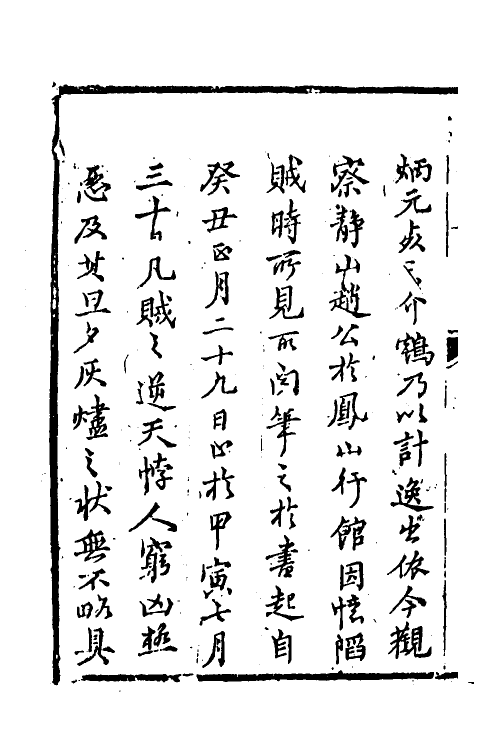 炳元貞民介鶴乃以計逸出依今觀
察靜山趙公於鳳山行館因憶陷
賊時所見所聞筆之於書起自
癸丑正月二十九日止於甲寅七月
三十日凡賊之逆天悖人窮凶極
惡及其旦夕灰燼之狀無不略具